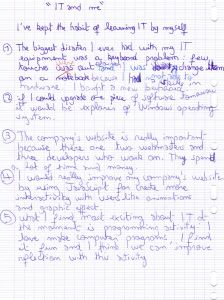 " IT and me "
I've kept the habit of learning IT by myself
① The biggest disaster I ever had with my IT
equipment was a keyboard problem: few
touches was change them
on a notebook because I had
hardware I bought a new
② If I could upgrade one piece of software tomorrow
it would be explorer of Windows operating
system.
③ The company's website is really important
because there are two webmasters and
three developers who work on. They spend
a lot of time and money.
④ I would really improve my company's website
by using Javascript for create more
interactivity with users like animations
and graphic effect
⑤ what I find most exciting about IT at
the moment is programming activity. I
have make computer programs. I find
it fun and I think we can improve
reflection with this activity